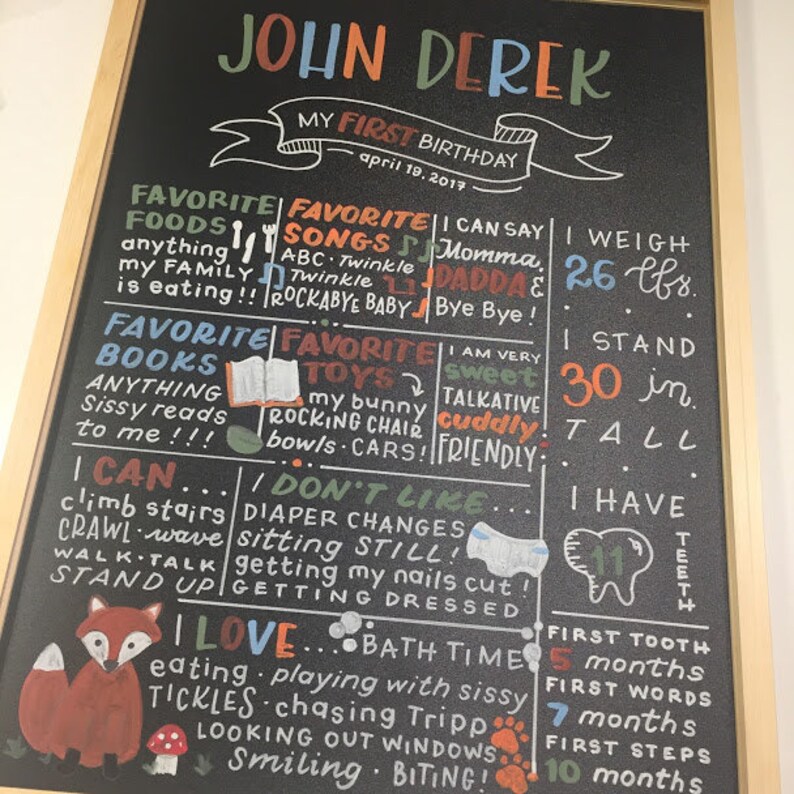 JOHN DEREK
MY FIRST BIRTHDAY
april 19.2017
FAVORITE
FOODS
anything
my FAMILY
is eating!!
FAVORITE
SONGS
ABC · Twinkle
Twinkle
ROCKABYE BABY
I CAN SAY
Momma,
DADDA &
Bye Bye!
I WEIGH
26 lbs.
FAVORITE
BOOKS
ANYTHING
Sissy reads
to me!!!
FAVORITE
TOYS
my bunny
ROCKING CHAIR
bowls · CARS!
I AM VERY
sweet
TALKATIVE
cuddly
FRIENDLY
I STAND
30 in.
TALL
I CAN...
climb stairs
CRAWL · wave
WALK · TALK
STAND UP
I DON'T LIKE...
DIAPER CHANGES
sitting STILL!
getting my nails cut!
GETTING DRESSED
I HAVE
11
TEETH
I LOVE... BATH TIME
eating · playing with sissy
TICKLES · chasing Tripp
LOOKING OUT WINDOWS
Smiling · BITING!
FIRST TOOTH
5 months
FIRST WORDS
7 months
FIRST STEPS
10 months